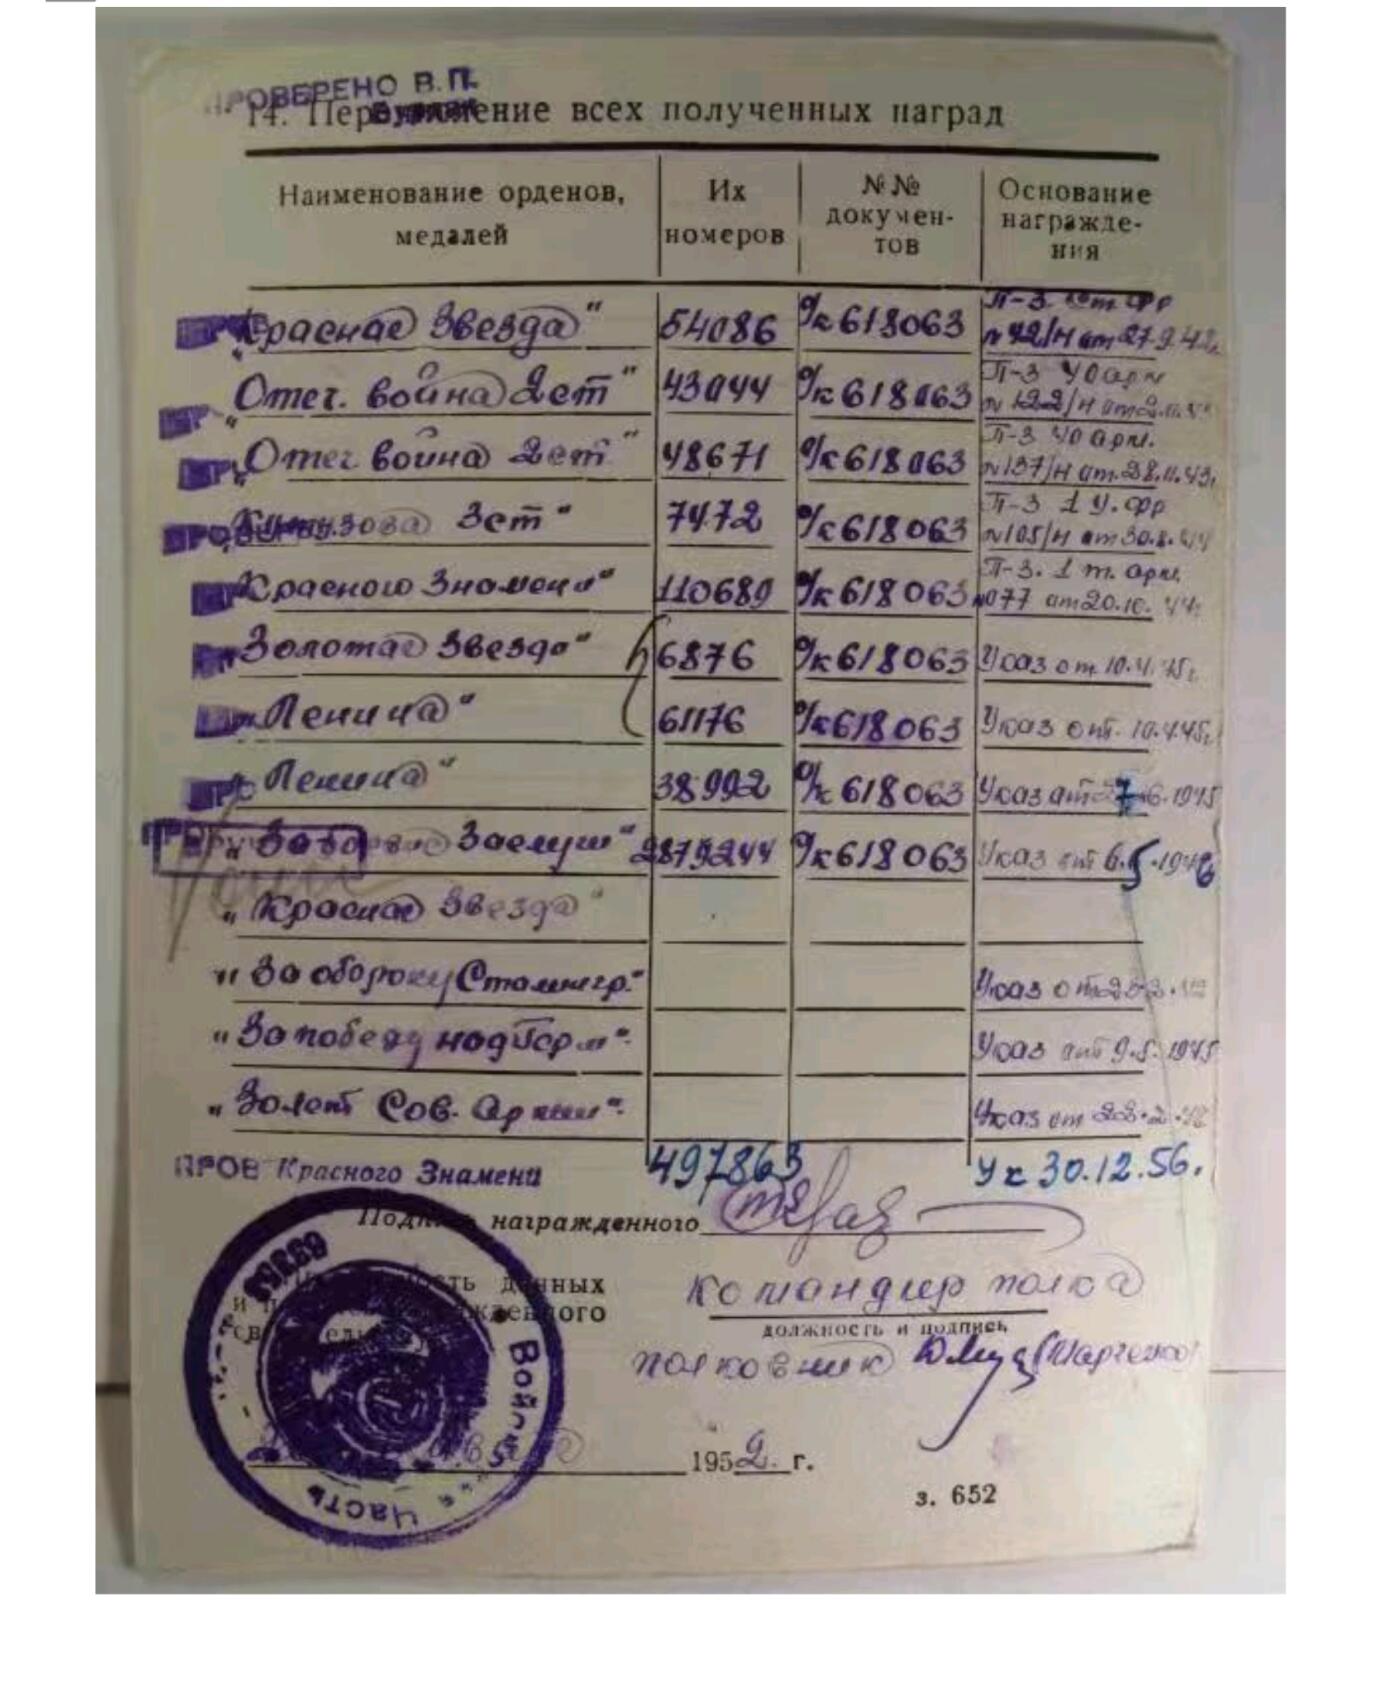 ПРОВЕРЕНО В.П.
14. Перечисление всех полученных наград
Наименование орденов, медалей
Их номеров
№№ докумен-тов
Основание награжде-ния
"Красная Звезда" 54086 О/к 618063 П-3. Фр № 42/н от 27.9.42г.
"Отеч. война 2 ст" 43044 О/к 618063 П-3 40 арм № 122/н от
"Отеч война 2 ст" 48671 О/к 618063 П-3 40 арм. № 137/н от 28.11.43г.
Кутузова 3 ст" 7472 О/к 618063 П-3 1 У. Фр № 105/н от 30.8.44
"Красного Знамени" 110689 О/к 618063 П-3. 1 т. арм. 077 от 20.10. 44г.
"Золотая Звезда" 6876 О/к 618063 Указ от 10.4.45г.
"Ленина" 61176 О/к 618063 Указ от 10.4.45г.
"Ленина" 38992 О/к 618063 Указ от 27.6.1945
"За боевые Заслуги" 2879244 О/к 618063 Указ от 6.5.1946
"Красная Звезда"
"За оборону Сталингр." Указ от
"За победу над Герм". Указ от 9.5.1945
"30 лет Сов. Армии". Указ от 22.2.48
ПРОВ Красного Знамени 497863 Ук 30.12.56.
Подпись награжденного
данных
командир полка
должность и подпись
полковник
Войсковая часть
1952 г.
з. 652